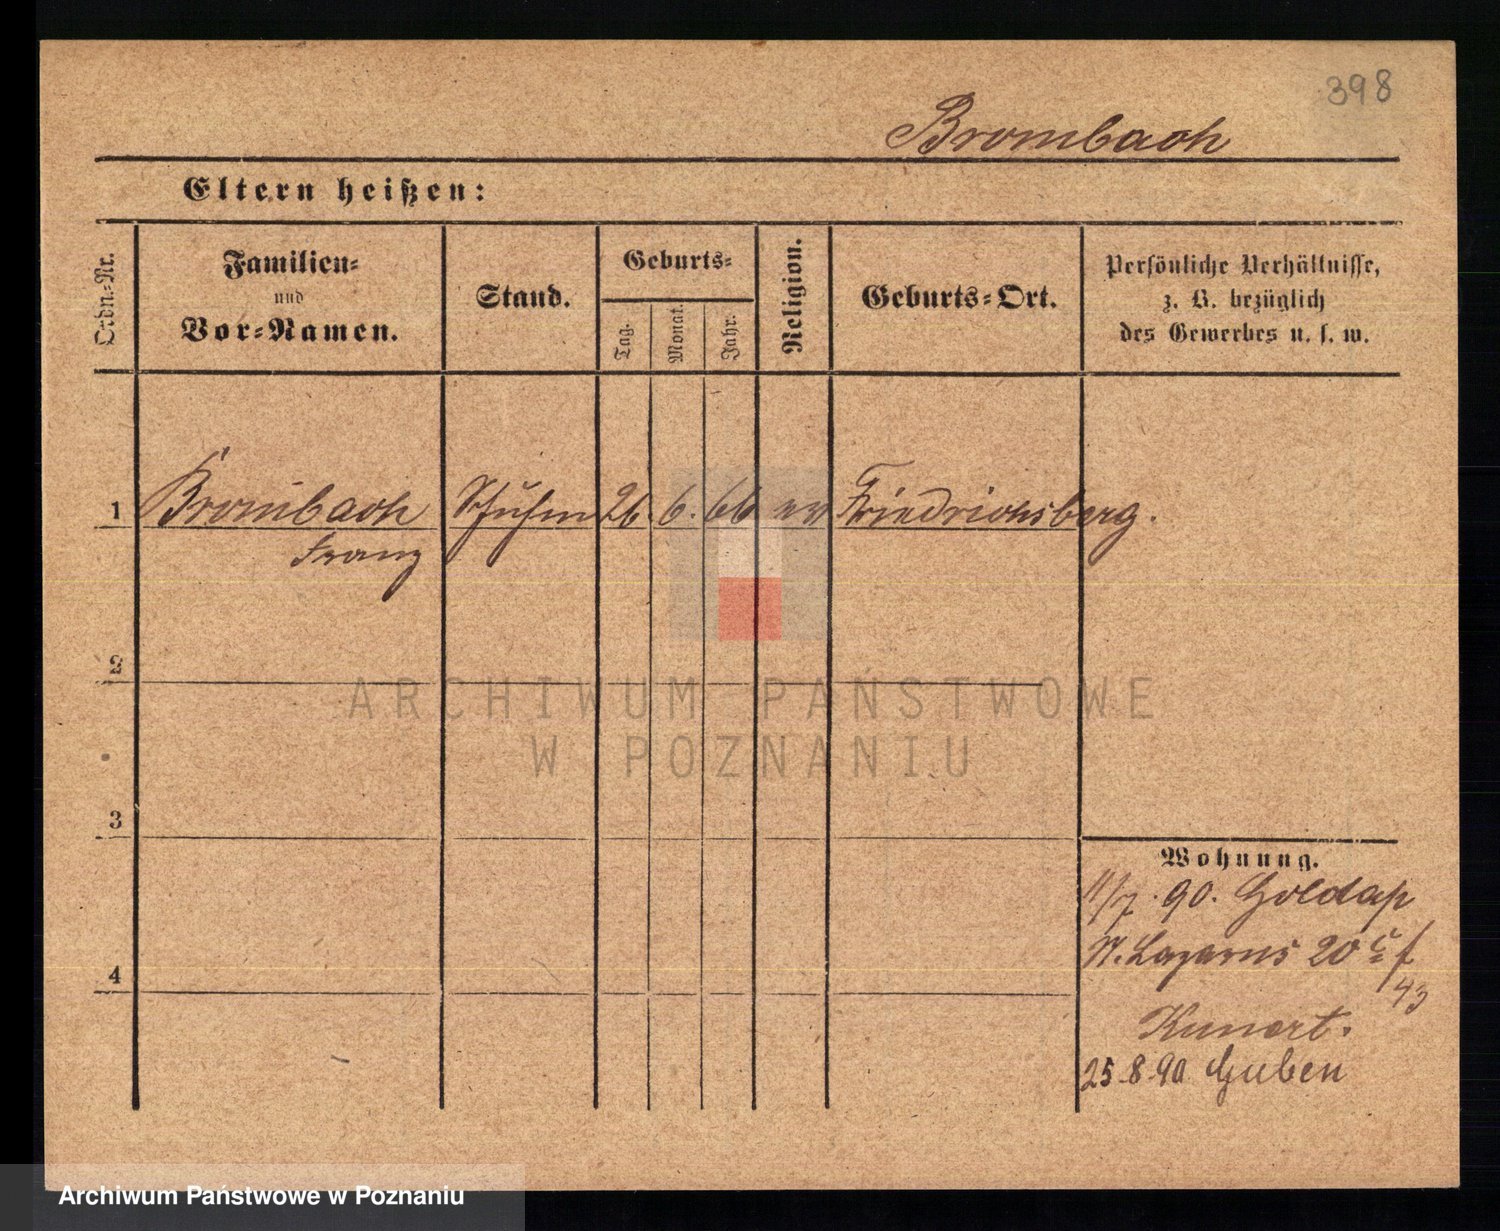 398
Brombach
Eltern heißen:
Ordn.-Nr.
Familien-
und
Vor-Namen.
Stand.
Geburts-
Tag.
Monat.
Jahr.
Religion.
Geburts-Ort.
Persönliche Verhältnisse,
z. B. bezüglich
des Gewerbes u. s. w.
1 Brombach 26. 6. 66 ev Friedrichsberg.
Franz
2
3
4
Wohnung.
11/7. 90. Goldap
St. Lazarus 20
43
Kunert.
25.8.90 Guben
ARCHIWUM PAŃSTWOWE
W POZNANIU
Archiwum Państwowe w Poznaniu